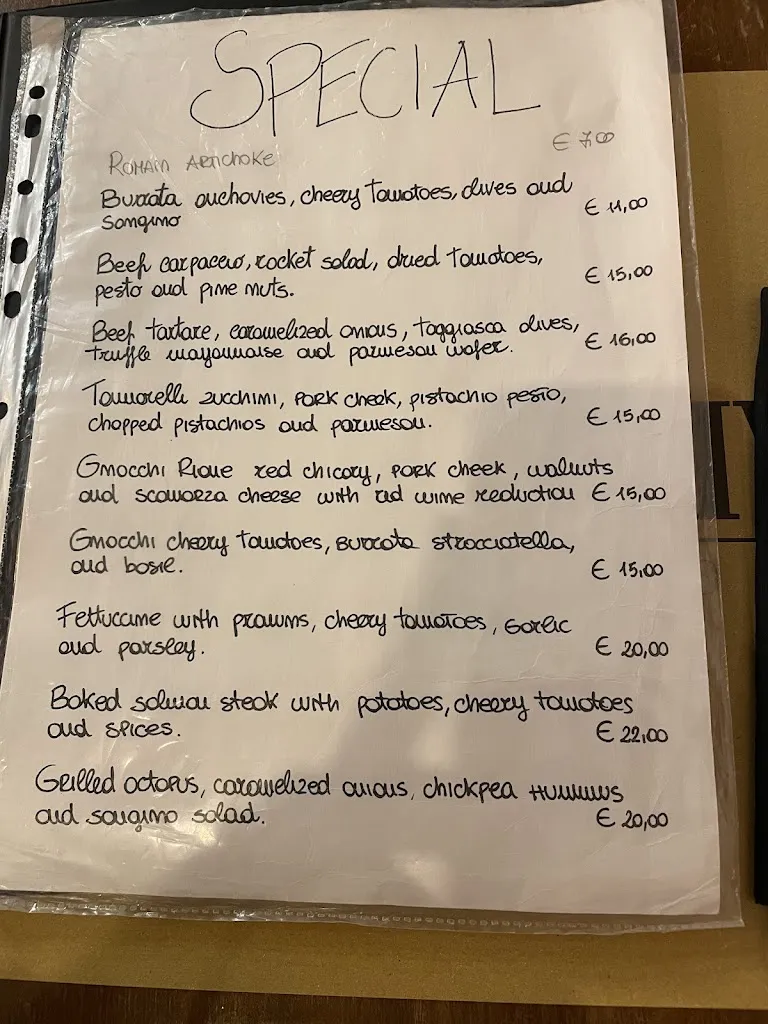 SPECIAL
ROMAIN ARTICHOKE € 7,00
Burrata anchovies, cheery tomatoes, olives and
songino € 11,00
Beef carpaccio, rocket salad, dried tomatoes,
pesto and pine nuts. € 15,00
Beef tartare, caramelized onions, taggiasca olives,
truffle mayonnaise and parmesan wafer. € 16,00
Tonnarelli zucchini, PORK cheek, pistachio pesto,
chopped pistachios and parmesan. € 15,00
Gnocchi Rione red chicory, PORK cheek, walnuts
and scamorza cheese with red wine reduction € 15,00
Gnocchi cheery tomatoes, Burrata stracciatella,
and basil. € 15,00
Fettuccine with prawns, cheery tomatoes, Garlic
and parsley. € 20,00
Baked salmon steak with potatoes, cheery tomatoes
and spices. € 22,00
Grilled octopus, caramelized onions, chickpea HUMMUS
and songino salad. € 20,00